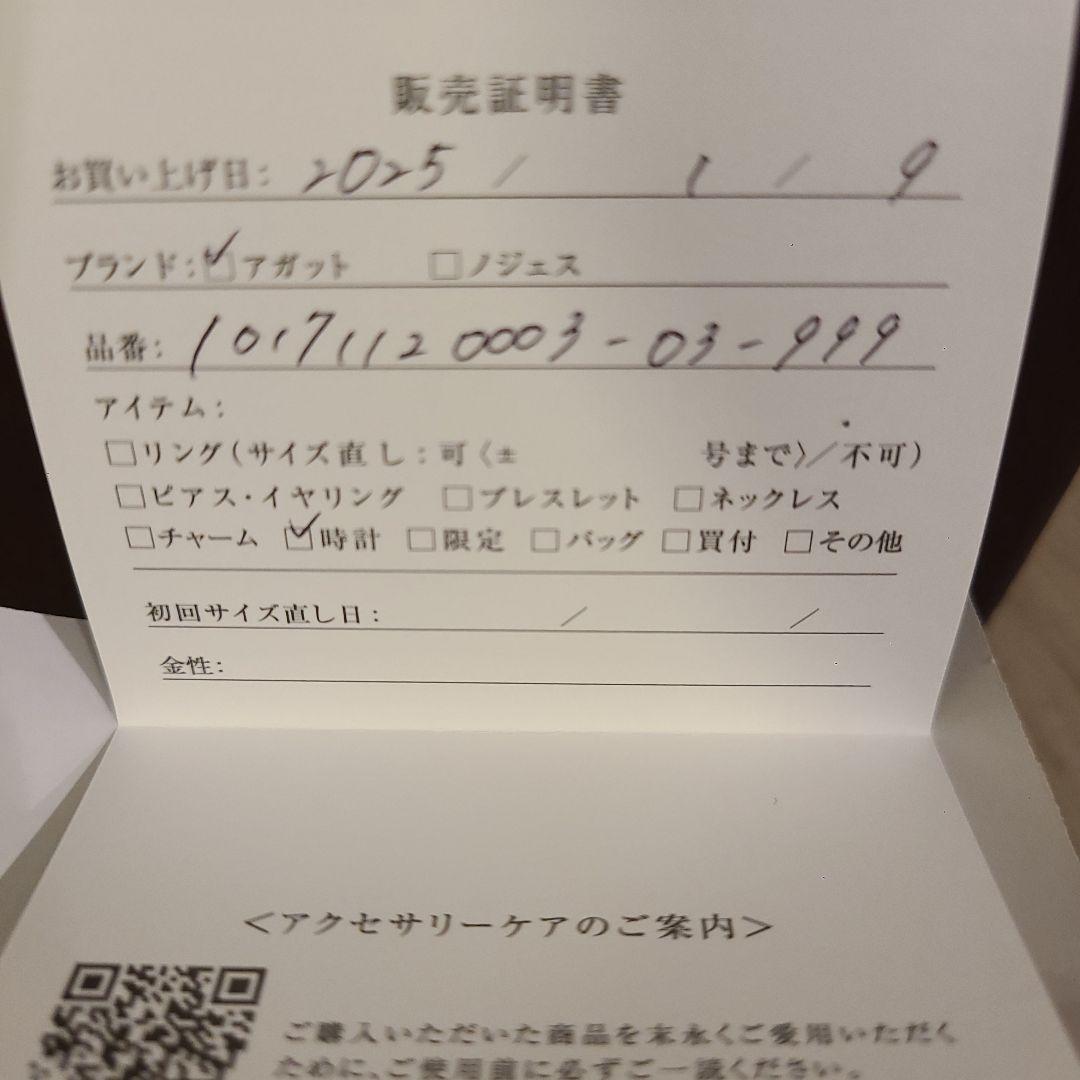 販売証明書
お買い上げ日: 2025 / 1 / 9
ブランド: ☑アガット □ノジェス
品番: 10171120003-03-999
アイテム:
□リング(サイズ直し:可〈± 号まで〉/不可)
□ピアス・イヤリング □ブレスレット □ネックレス
□チャーム ☑時計 □限定 □バッグ □買付 □その他
初回サイズ直し日: / /
金性:
<アクセサリーケアのご案内>
ご購入いただいた商品を末永くご愛用いただく
ために、ご使用前に必ずご一読ください。